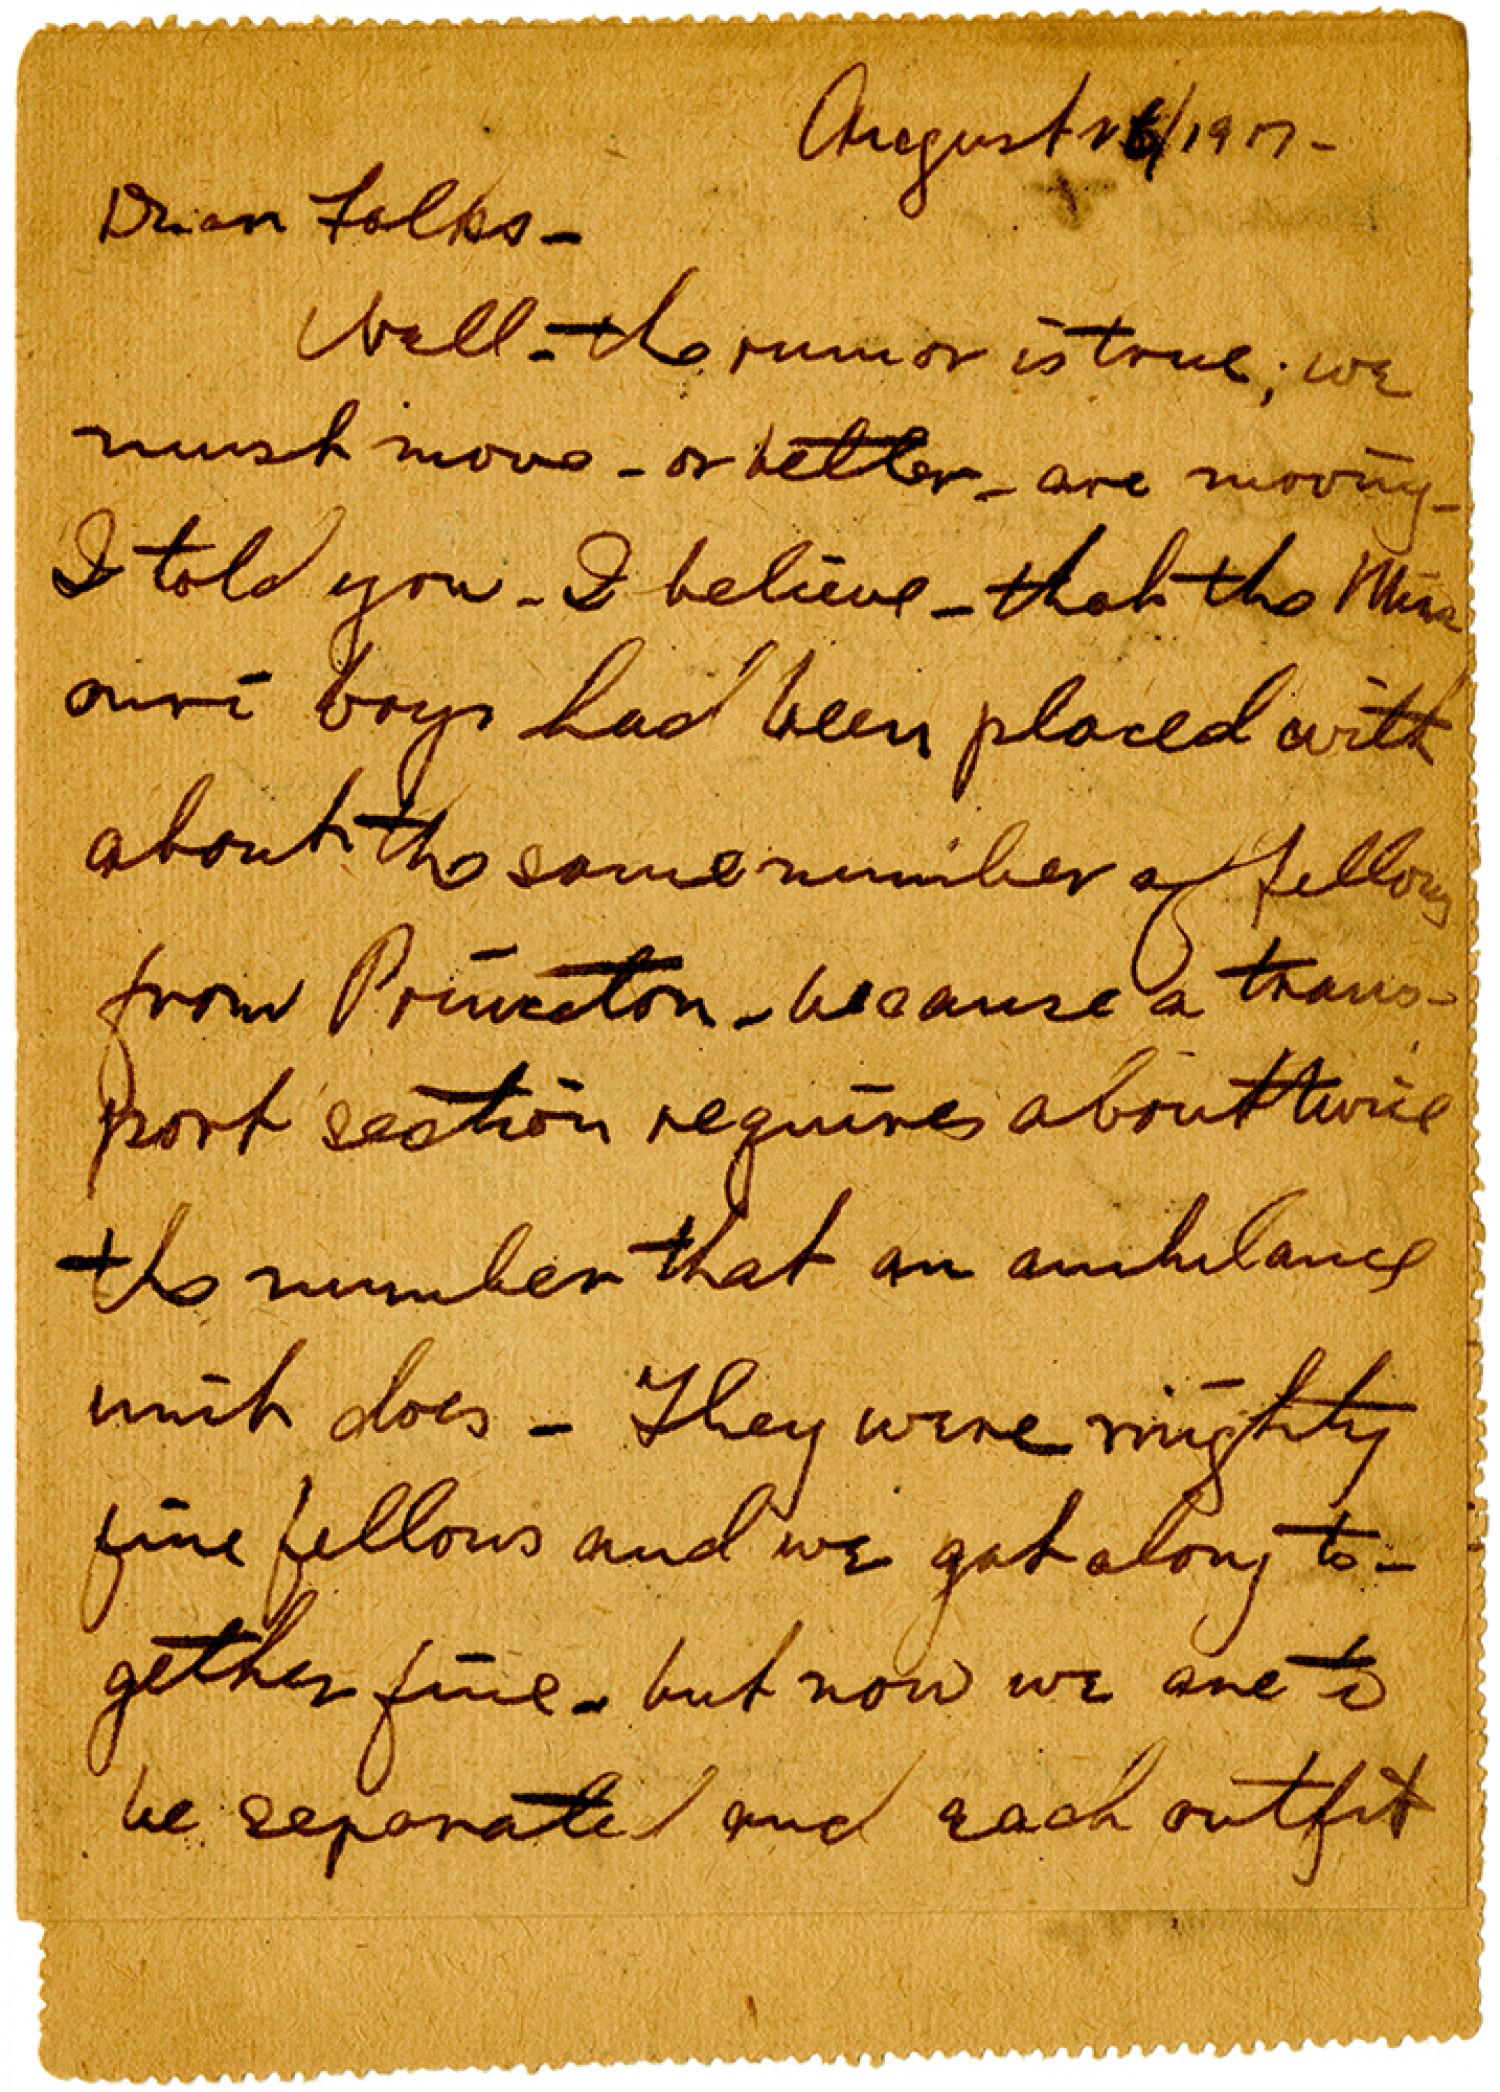 August 26/1917-
Dear Folks-
Well - the rumor is true; we
must move - or better - are moving -
I told you - I believe - that the Miss
ouri boys had been placed with
about the same number of fellows
from Princeton - because a trans-
port section requires about twice
the number that an ambulance
unit does - They were mighty
fine fellows and we got along to-
gether fine - but now we are to
be separated and each outfit